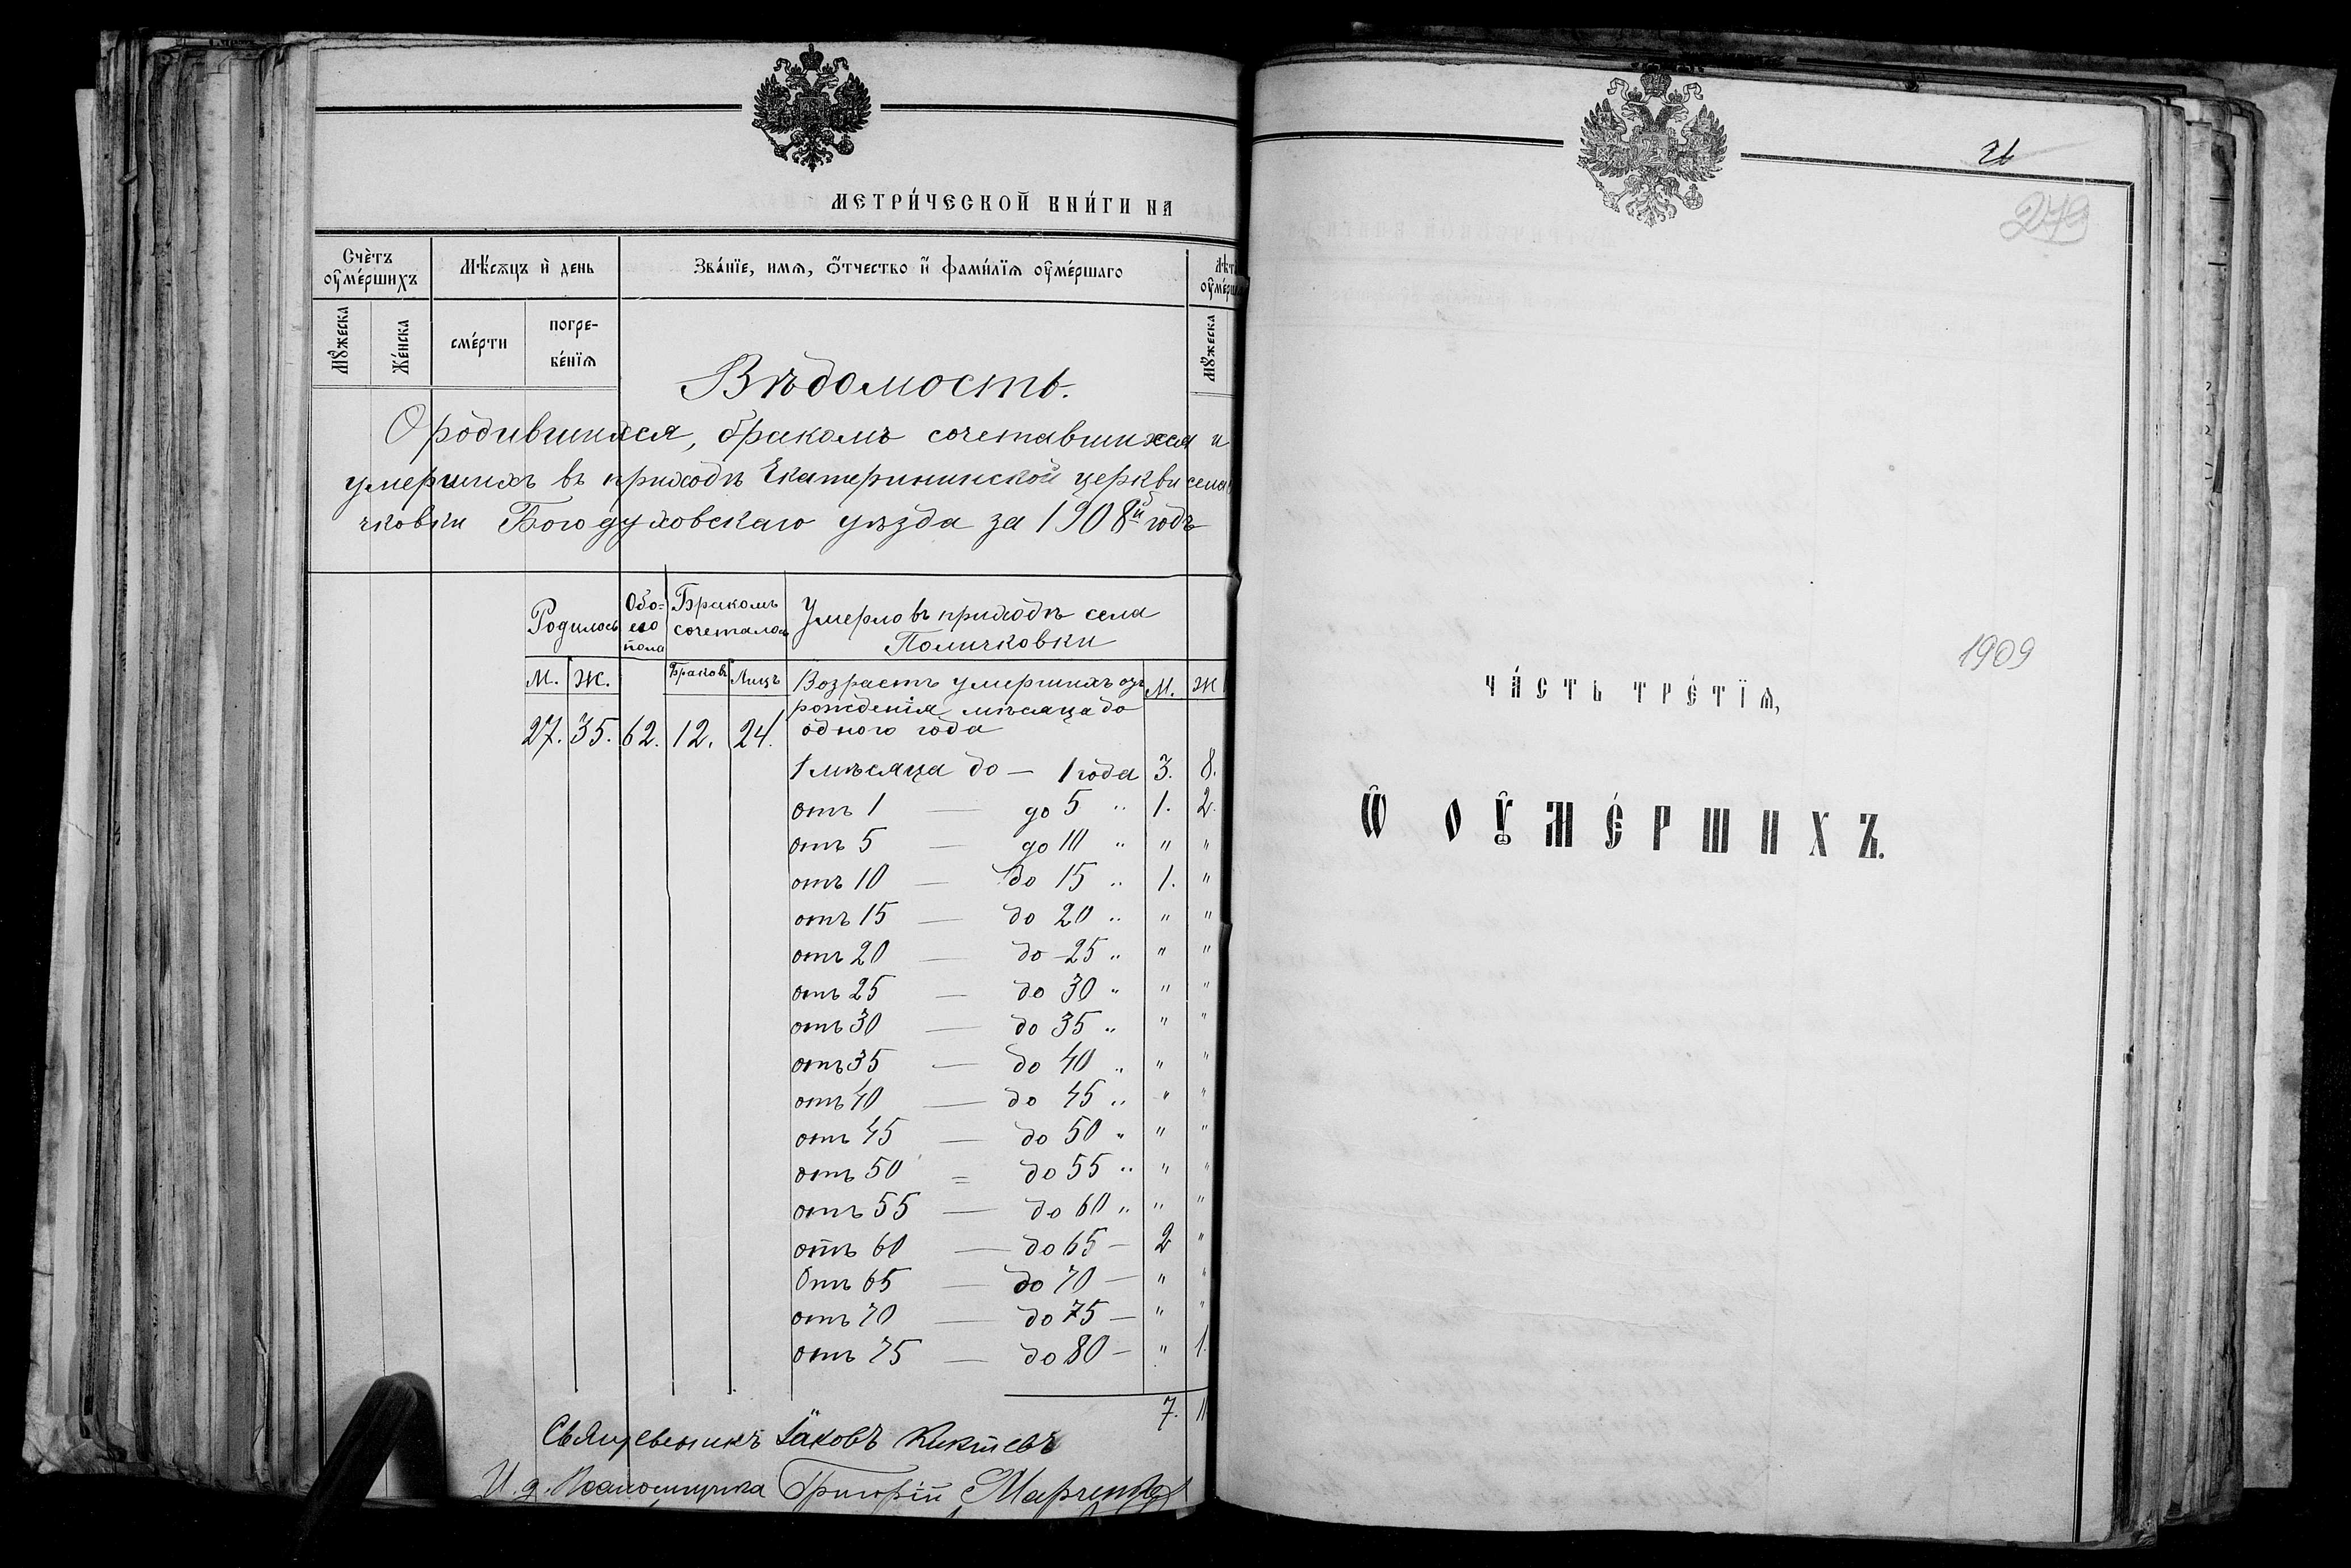 МЕТРИ́ЧЕСКОЙ КНИ́ГИ НА
Сче́тъ оу҆ме́ршихъ
Мѣ́сѧцъ и҆ де́нь
Зва́нїе, имѧ, ѻ҆́тчество и҆ фами́лїѧ оу҆ме́ршаго
Мꙋ́жеска
Же́нска
сме́рти
погре-
бе́нїѧ
Мꙋ́жеска
Вѣдомость.
О родившихся, бракомъ сочетавшихся и
умершихъ въ приходѣ Екатерининской церкви села
чковки Богодуховскаго уѣзда за 1908й годъ
Родилось
Обо=
его
пола
Бракомъ
сочеталось
Умерло въ приходѣ села
Поличковки
М. Ж. Браковъ Лицъ Возрастъ умершихъ отъ М. Ж
рожденія мѣсяца до
27. 35. 62. 12. 24. одного года
1 мѣсяца до — 1 года 3. 8.
отъ 1 — до 5 " 1. 2.
отъ 5 — до 10 " " "
отъ 10 — до 15 " 1. "
отъ 15 — до 20 " " "
отъ 20 — до 25 " " "
отъ 25 — до 30 " " "
отъ 30 — до 35 " " "
отъ 35 — до 40 " " "
отъ 40 — до 45 " " "
отъ 45 — до 50 " " "
отъ 50 = до 55 " " "
отъ 55 — до 60 " " "
отъ 60 — до 65 — 2 "
Отъ 65 — до 70 — " "
отъ 70 — до 75 — " "
отъ 75 — до 80 — " 1.
7. 11
Священникъ Іаковъ
И. д. Псаломщика Григорій
279
1909
ЧА́СТЬ ТРЕ́ТЇѦ,
Ѽ ОУ҆МЕ́РШИХЪ.